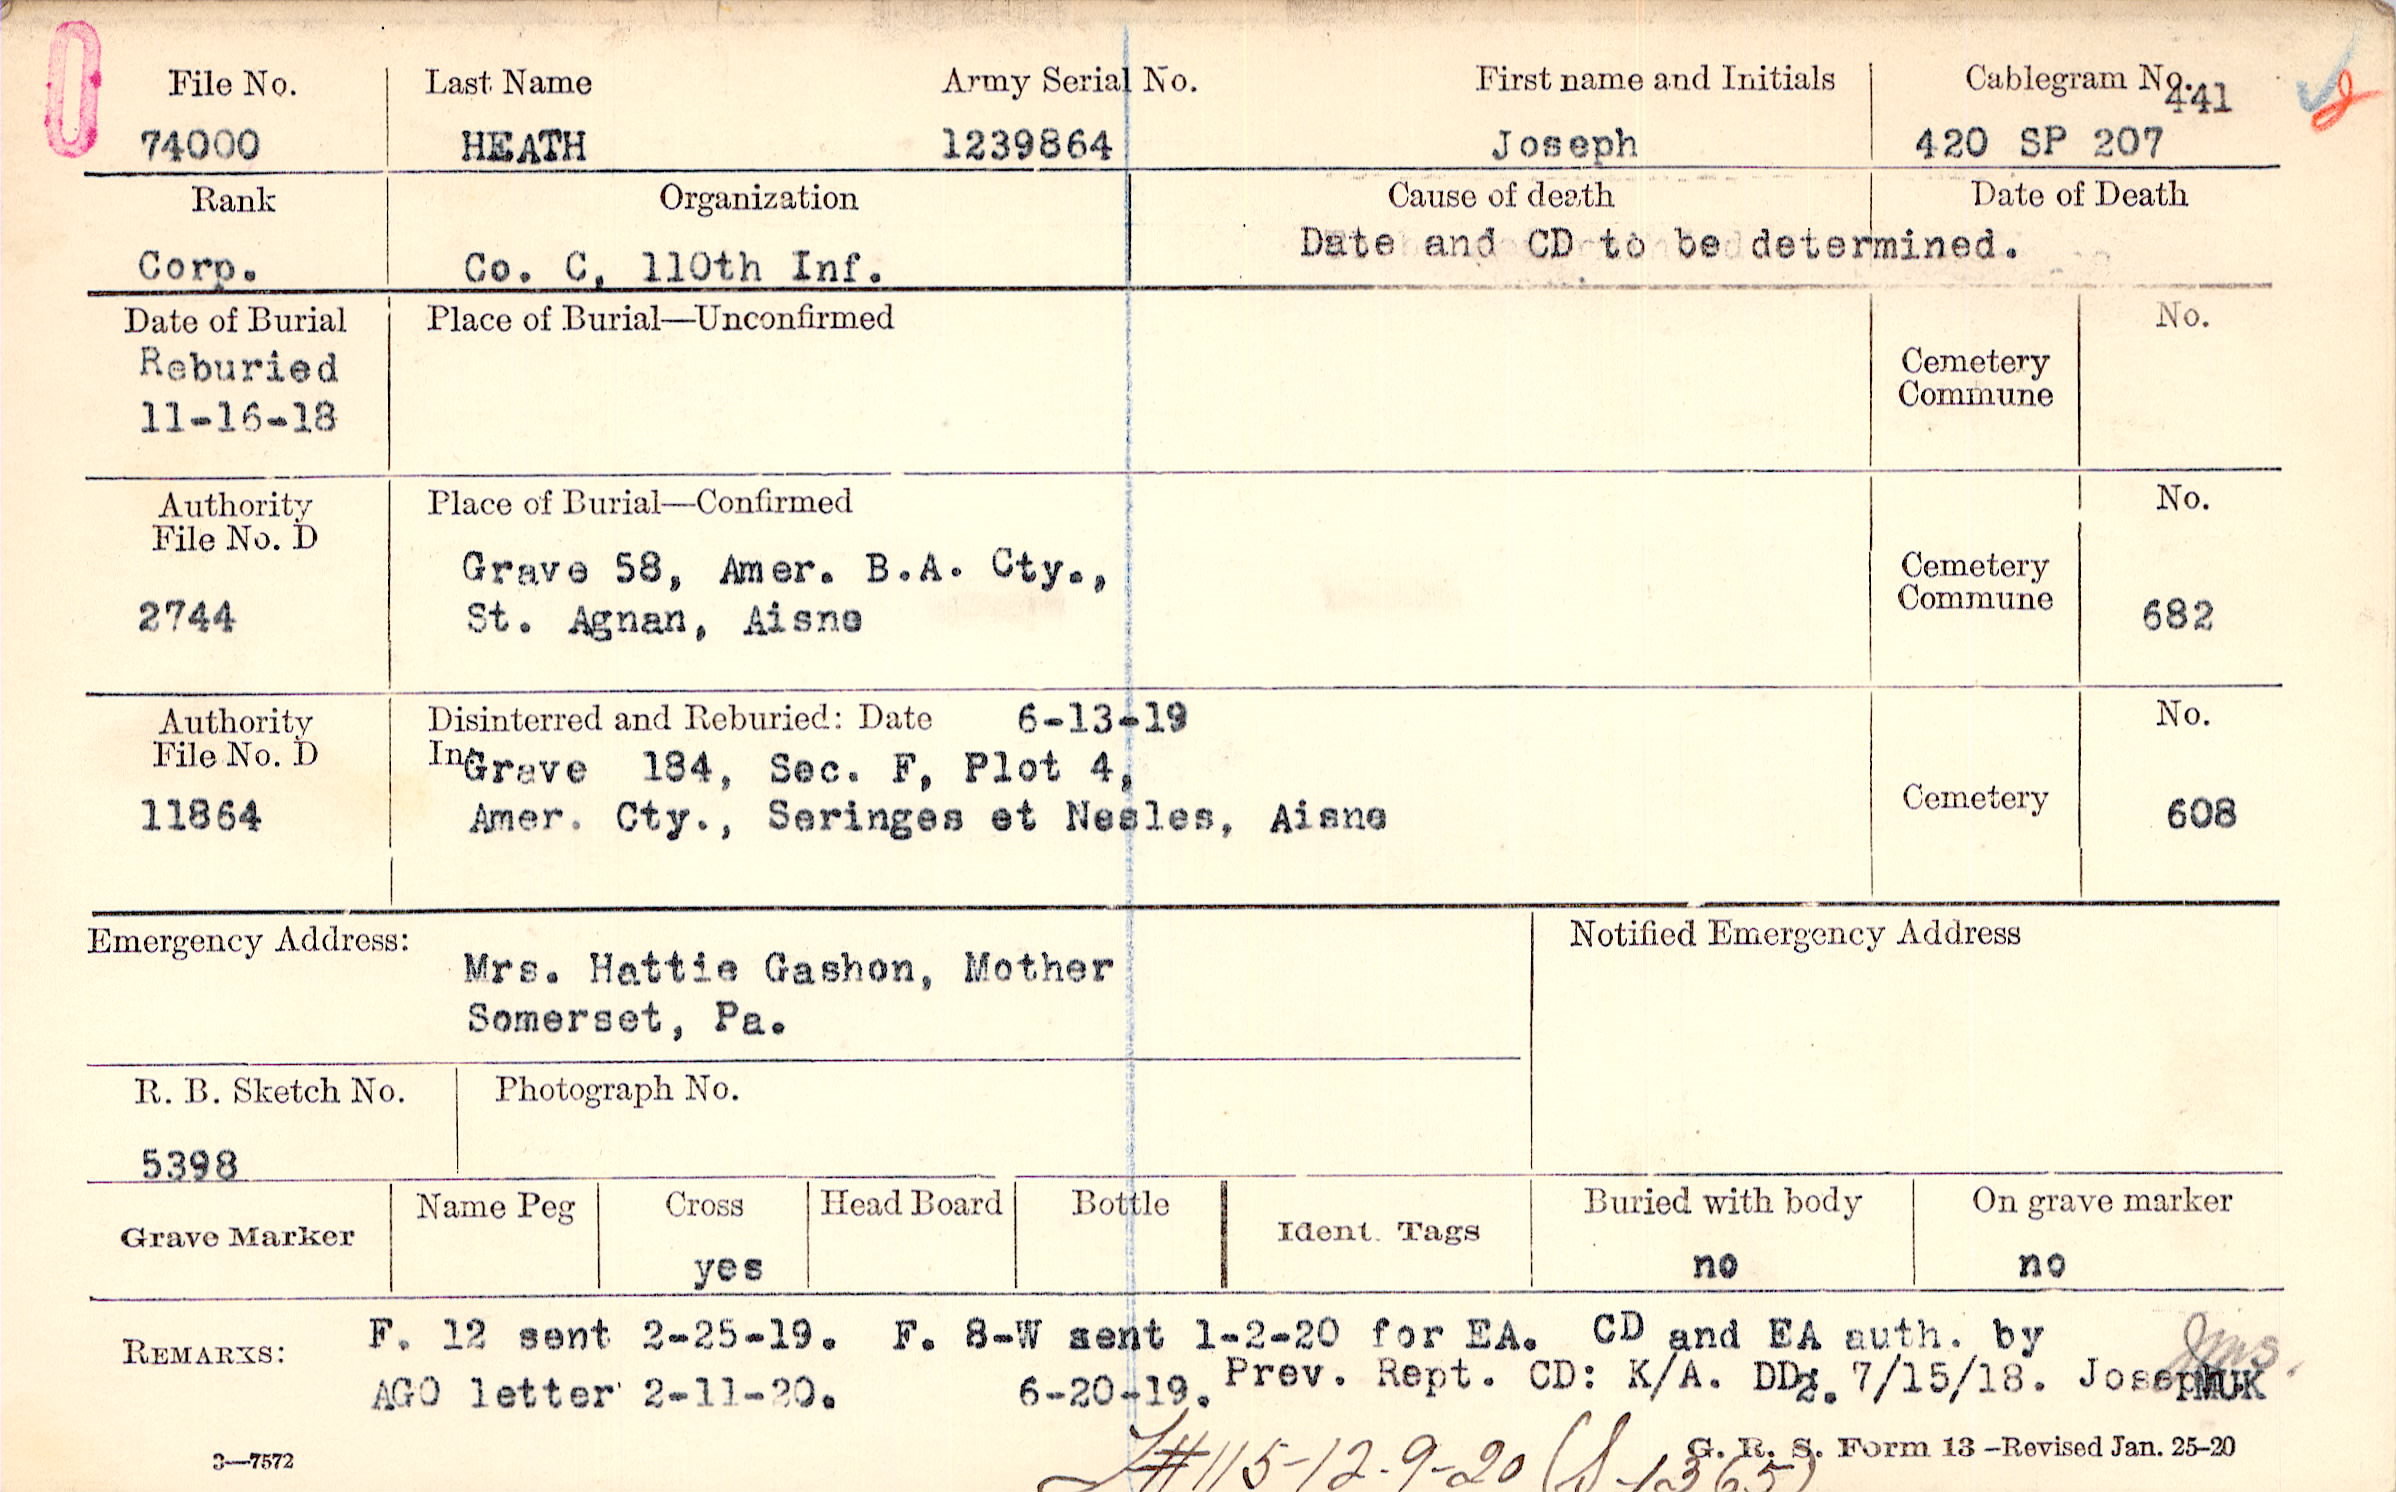 File No. Last Name Army Serial No. First name and Initials Cablegram No.
441
74000 HEATH 1239864 Joseph 420 SP 207
Rank Organization Cause of death Date of Death
Date and CD to be determined.
Corp. Co. C, 110th Inf.
Date of Burial Place of Burial—Unconfirmed No.
Reburied
11-16-18
Cemetery
Commune
Authority Place of Burial—Confirmed No.
File No. D
Grave 58, Amer. B.A. Cty.,
2744 St. Agnan, Aisne
Cemetery
Commune
682
Authority Disinterred and Reburied: Date 6-13-19 No.
File No. D In Grave 184, Sec. F, Plot 4,
11864 Amer. Cty., Seringes et Nesles, Aisne Cemetery 608
Emergency Address: Notified Emergency Address
Mrs. Hattie Gashon, Mother
Somerset, Pa.
R. B. Sketch No. Photograph No.
5398
Grave Marker Name Peg Cross Head Board Bottle Ident. Tags Buried with body On grave marker
yes no no
REMARKS: F. 12 sent 2-25-19. F. 8-W sent 1-2-20 for EA. CD and EA auth. by
AGO letter 2-11-20. 6-20-19. Prev. Rept. CD: K/A. DD: 7/15/18. Joseph.
MUK
3—7572
#115-12-9-20 (S-1365)
G. R. S. Form 13—Revised Jan. 25-20